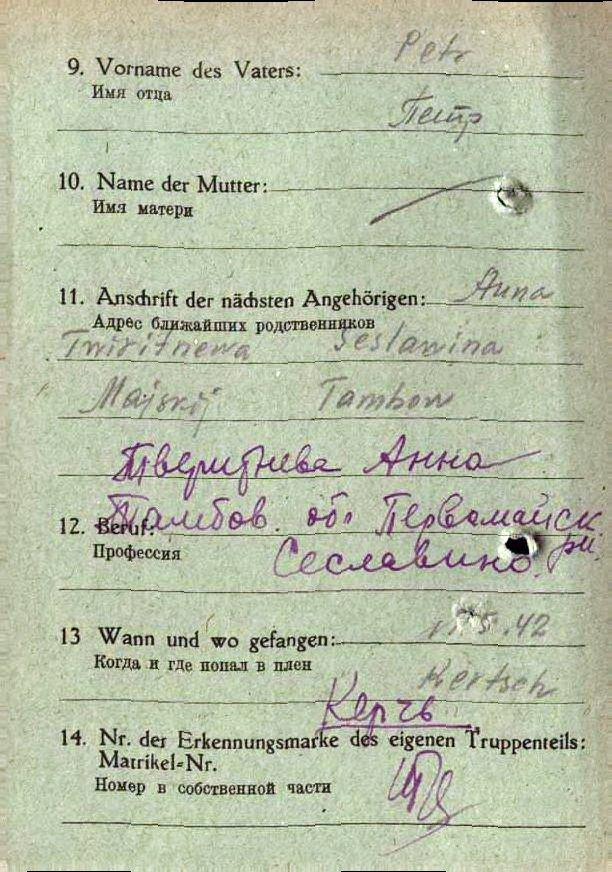 9. Vorname des Vaters: Petr
Имя отца
Петр
10. Name der Mutter:
Имя матери
11. Anschrift der nächsten Angehörigen: Anna
Адрес ближайших родственников
Twiritnewa Seslawina
Majskij Tambow
Тверитнева Анна
Тамбов. обл Первомайск
12. Beruf:
рн.
Профессия
Сеславино.
13 Wann und wo gefangen: 5.42
Когда и где попал в плен
Kertsch
Керчь
14. Nr. der Erkennungsmarke des eigenen Truppenteils:
Matrikel-Nr.
Номер в собственной части